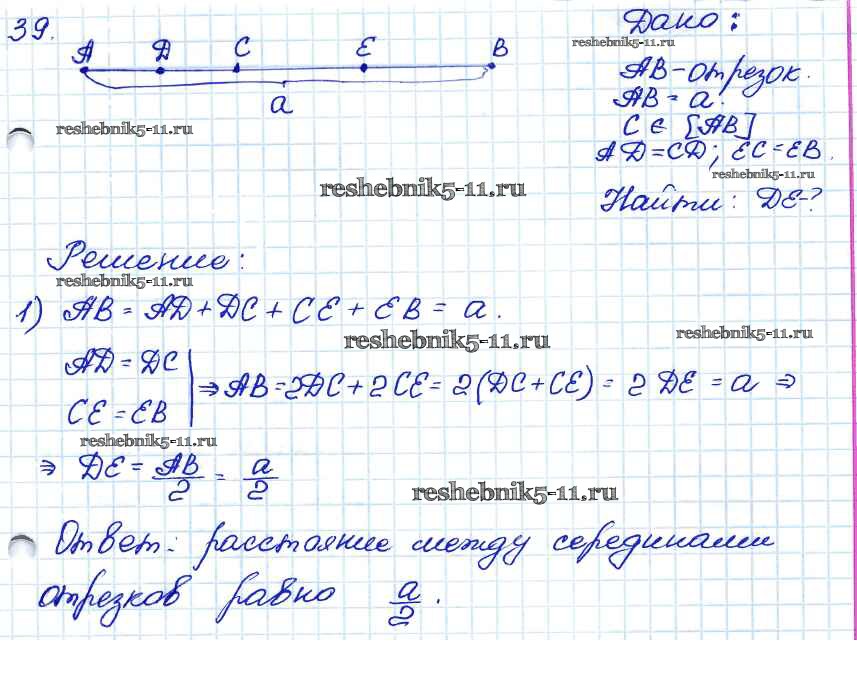 39.
A D C E B
a
Дано:
reshebnik5-11.ru
AB - отрезок.
AB = a.
C ∈ [AB]
AD = CD; EC = EB.
reshebnik5-11.ru
Найти: DE-?
reshebnik5-11.ru
reshebnik5-11.ru
Решение:
reshebnik5-11.ru
1) AB = AD + DC + CE + EB = a.
reshebnik5-11.ru
reshebnik5-11.ru
AD = DC
CE = EB
⇒ AB = 2DC + 2CE = 2(DC + CE) = 2 DE = a ⇒
reshebnik5-11.ru
⇒ DE = AB/2 = a/2
reshebnik5-11.ru
Ответ: расстояние между серединами
отрезков равно a/2.